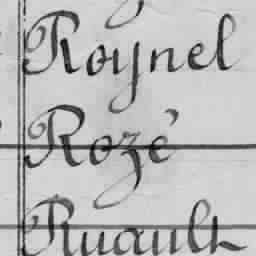 Roynel
Rozé
Ruault